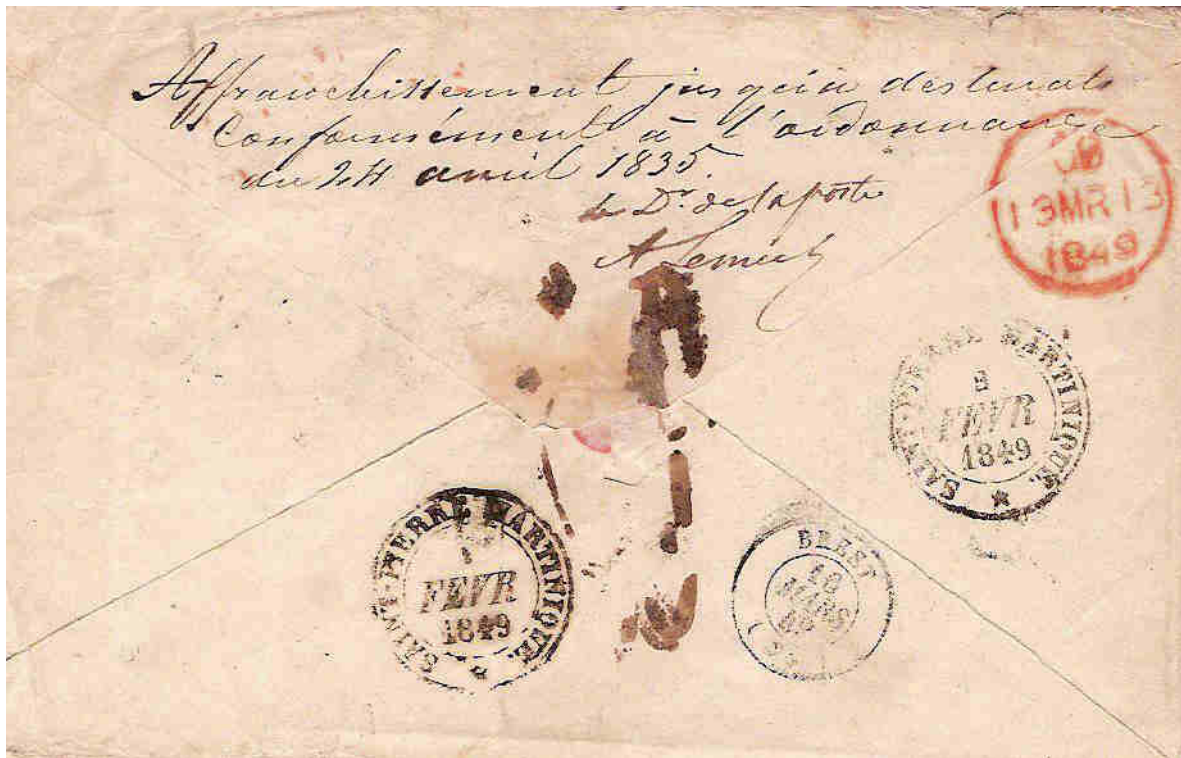 Affranchissement jusqu'à destinat
Conformément à l'ordonnance
du 24 avril 1835.
le Dr. de la poste
A
13MR13
1849
SAINT-PIERRE MARTINIQUE.
FEVR
1849
SAINT-PIERRE MARTINIQUE.
FEVR
1849
BREST
10
MARS